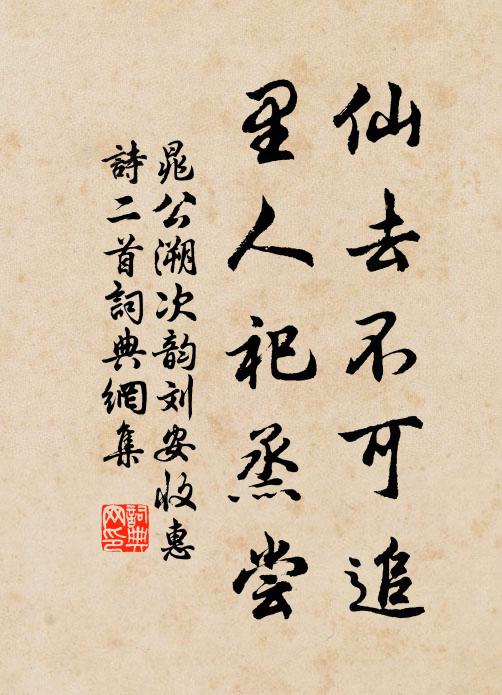 仙去不可追
里人祀蒸尝
晁公溯次韵刘安收惠
詩二首詞典網集
詞典
网印